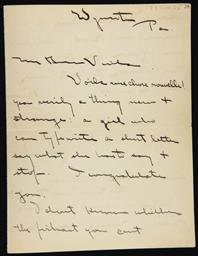 Wyncote
Pa
My dear Viola
Voila une chose nouvelle!
you verily a thing new &
strange. a girl who
can typewrite a short letter
say what she has to say &
stop. I congratulate
you.
I don't know whether
the portrait you sent